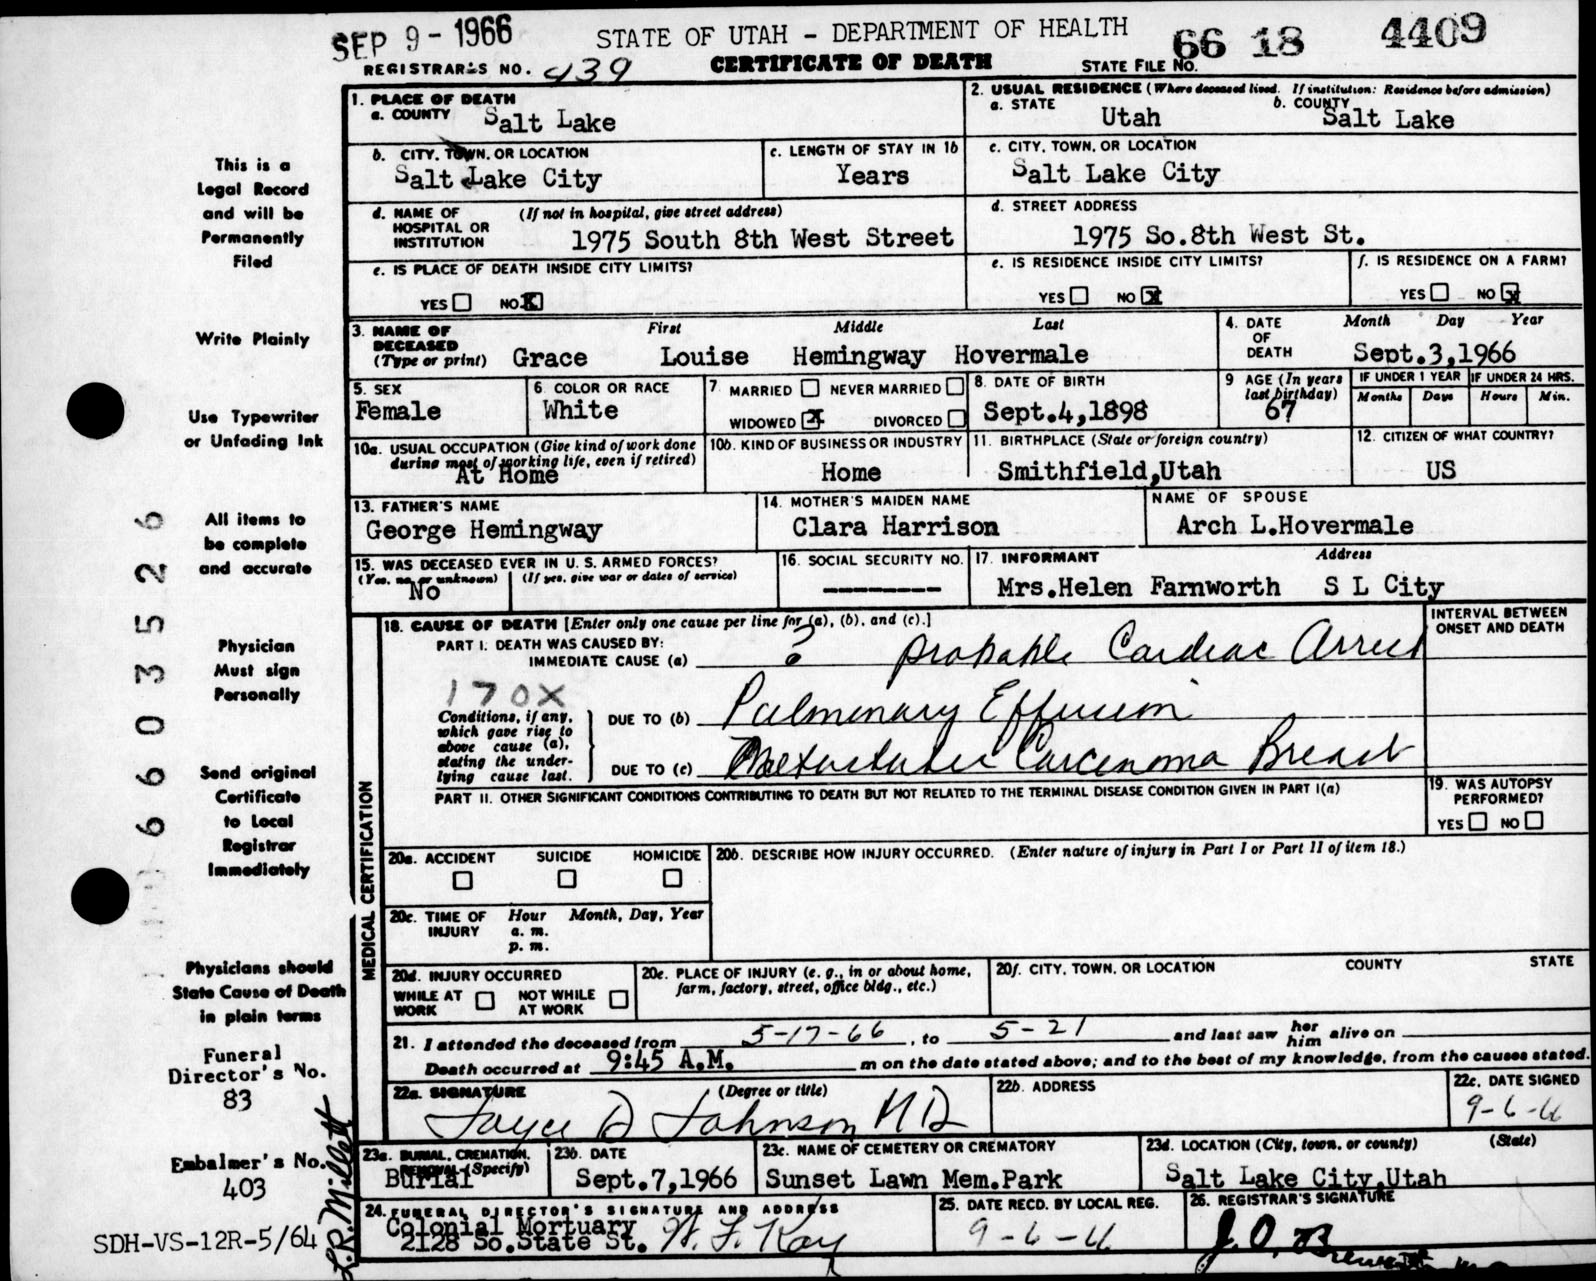 SEP 9 - 1966
STATE OF UTAH - DEPARTMENT OF HEALTH
66 18 4409
REGISTRAR'S NO. 439
CERTIFICATE OF DEATH
STATE FILE NO.
1. PLACE OF DEATH
a. COUNTY Salt Lake
2. USUAL RESIDENCE (Where deceased lived. If institution: Residence before admission)
a. STATE Utah b. COUNTY Salt Lake
b. CITY, TOWN, OR LOCATION
Salt Lake City
c. LENGTH OF STAY IN 1b
Years
c. CITY, TOWN, OR LOCATION
Salt Lake City
d. NAME OF HOSPITAL OR INSTITUTION (If not in hospital, give street address)
1975 South 8th West Street
d. STREET ADDRESS
1975 So.8th West St.
e. IS PLACE OF DEATH INSIDE CITY LIMITS?
YES NO X
e. IS RESIDENCE INSIDE CITY LIMITS?
YES NO X
f. IS RESIDENCE ON A FARM?
YES NO X
3. NAME OF DECEASED (Type or print)
First Middle Last
Grace Louise Hemingway Hovermale
4. DATE OF DEATH
Month Day Year
Sept.3,1966
5. SEX
Female
6. COLOR OR RACE
White
7. MARRIED NEVER MARRIED
WIDOWED X DIVORCED
8. DATE OF BIRTH
Sept.4,1898
9 AGE (In years last birthday)
67
IF UNDER 1 YEAR IF UNDER 24 HRS.
Months Days Hours Min.
10a. USUAL OCCUPATION (Give kind of work done during most of working life, even if retired)
At Home
10b. KIND OF BUSINESS OR INDUSTRY
Home
11. BIRTHPLACE (State or foreign country)
Smithfield,Utah
12. CITIZEN OF WHAT COUNTRY?
US
13. FATHER'S NAME
George Hemingway
14. MOTHER'S MAIDEN NAME
Clara Harrison
NAME OF SPOUSE
Arch L.Hovermale
15. WAS DECEASED EVER IN U. S. ARMED FORCES?
(Yes, no, or unknown) (If yes, give war or dates of service)
No
16. SOCIAL SECURITY NO.
---------
17. INFORMANT Address
Mrs.Helen Farnworth S L City
MEDICAL CERTIFICATION
18. CAUSE OF DEATH [Enter only one cause per line for (a), (b), and (c).]
INTERVAL BETWEEN ONSET AND DEATH
PART I. DEATH WAS CAUSED BY:
IMMEDIATE CAUSE (a) ? probable Cardiac Arrest
170X
Conditions, if any, which gave rise to above cause (a), stating the underlying cause last.
DUE TO (b) Pulmonary Effusion
DUE TO (c) Metastatic Carcinoma Breast
PART II. OTHER SIGNIFICANT CONDITIONS CONTRIBUTING TO DEATH BUT NOT RELATED TO THE TERMINAL DISEASE CONDITION GIVEN IN PART I(a)
19. WAS AUTOPSY PERFORMED?
YES NO
20a. ACCIDENT SUICIDE HOMICIDE
20b. DESCRIBE HOW INJURY OCCURRED. (Enter nature of injury in Part I or Part II of item 18.)
20c. TIME OF INJURY Hour Month, Day, Year
a. m.
p. m.
20d. INJURY OCCURRED
WHILE AT WORK NOT WHILE AT WORK
20e. PLACE OF INJURY (e. g., in or about home, farm, factory, street, office bldg., etc.)
20f. CITY, TOWN, OR LOCATION COUNTY STATE
21. I attended the deceased from 5-17-66, to 5-21 and last saw her him alive on
Death occurred at 9:45 A.M. m on the date stated above; and to the best of my knowledge, from the causes stated.
22a. SIGNATURE (Degree or title)
Joyce D Johnson MD
22b. ADDRESS
22c. DATE SIGNED
9-6-66
23a. BURIAL, CREMATION, REMOVAL (Specify)
Burial
23b. DATE
Sept.7,1966
23c. NAME OF CEMETERY OR CREMATORY
Sunset Lawn Mem.Park
23d. LOCATION (City, town, or county) (State)
Salt Lake City,Utah
24. FUNERAL DIRECTOR'S SIGNATURE AND ADDRESS
Colonial Mortuary
2128 So.State St.
25. DATE RECD. BY LOCAL REG.
9-6-66
26. REGISTRAR'S SIGNATURE
This is a
Legal Record
and will be
Permanently
Filed
Write Plainly
Use Typewriter
or Unfading Ink
All items to
be complete
and accurate
Physician
Must sign
Personally
Send original
Certificate
to Local
Registrar
Immediately
Physicians should
State Cause of Death
in plain terms
Funeral
Director's No.
83
Embalmer's No.
403
L.R. Millett
SDH-VS-12R-5/64
660035526